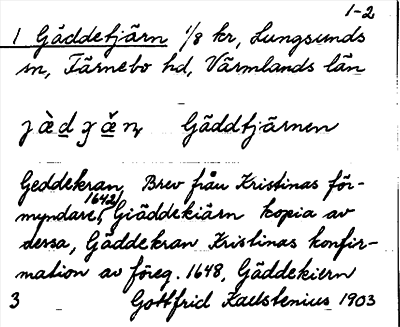 1-2
1 Gäddetjärn 1/8 kr, Lungsunds
sn, Färnebo hd, Värmlands län
Gäddtjärnen
Geddekran, Brev från Kristinas för-
myndare, 1642, Giäddekiärn kopia av
dersa, Gäddekran Kristinas konfir-
mation av föreg. 1648, Gäddekiern
3 Gottfrid Kallstenius 1903